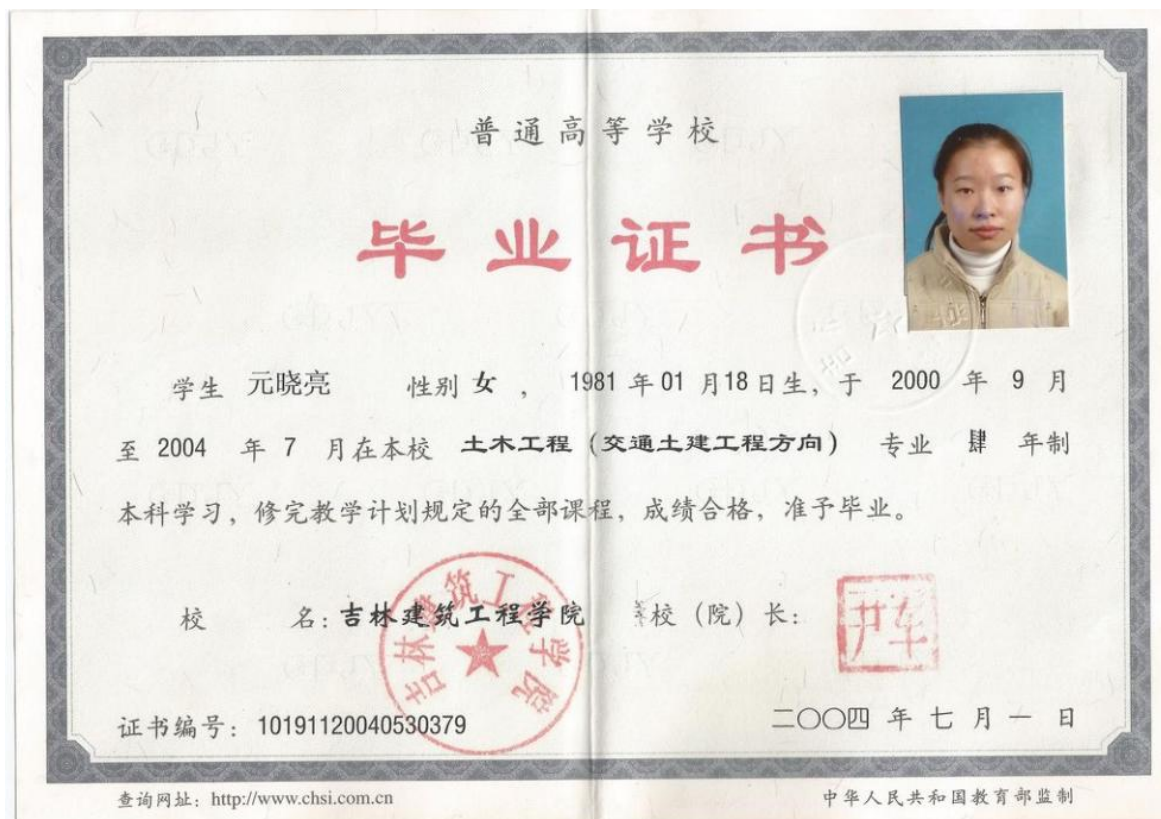 普通高等学校
毕业证书
学生 元晓亮 性别 女 ， 1981 年 01 月 18 日生，于 2000 年 9 月
至 2004 年 7 月在本校 土木工程（交通土建工程方向） 专业 肆 年制
本科学习，修完教学计划规定的全部课程，成绩合格，准予毕业。
校 名：吉林建筑工程学院 校（院）长：
吉林建筑工程学院
证书编号：10191120040530379
二〇〇四 年 七 月 一 日
查询网址：http://www.chsi.com.cn
中华人民共和国教育部监制